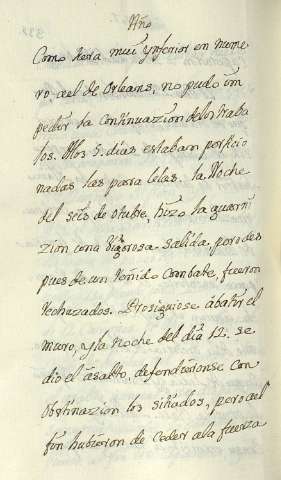 Año
Como hera mui ynferior en nume
ro, ael de Orleans, no pudo ym
pedir la continuazion delos traba
los. Alos 5. dias estaban perficio
nadas las paralelas. la Noche
del seis de otubre, hizo la guarni
zion una vigorosa salida, pero des
pues de un reñido Combate, fueron
rechazados. Prosiguiose ábatir el
muro, y la noche del dia 12. se
dio el ásalto, defendieronse con
obstinazion los sitiados, pero ael
fin hubieron de ceder ala fuerza